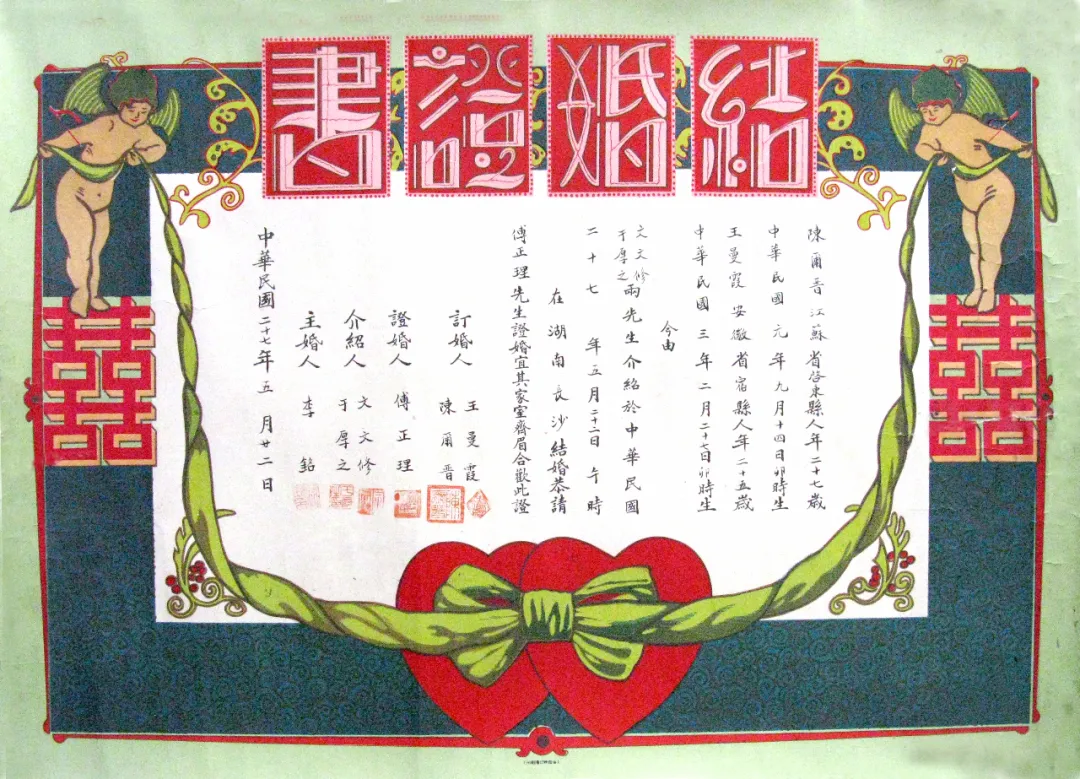 結婚證書
陳爾晋 江蘇省啓東縣人年二十七歲
中華民國 元年九月十四日卯時生
王曼霞 安徽省宿縣人年二十五歲
中華民國 三年二月二十七日卯時生
今由
文文修
于厚之
兩先生介紹於中華民國
二十七 年五月二十二日 午時
在湖南長沙結婚恭請
傅正理先生證婚宜其家室齊眉合歡此證
訂婚人 王曼霞
陳爾晋
證婚人 傅正理
介紹人 文文修
于厚之
主婚人 李銘
中華民國二十七年五月廿二日